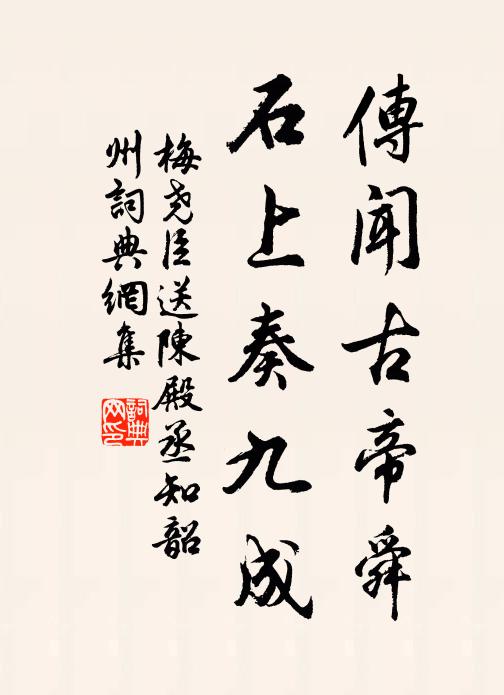 傳聞古帝舜
石上奏九成
梅尧臣送陳殿丞知韶
州詞典網集
詞典
网印